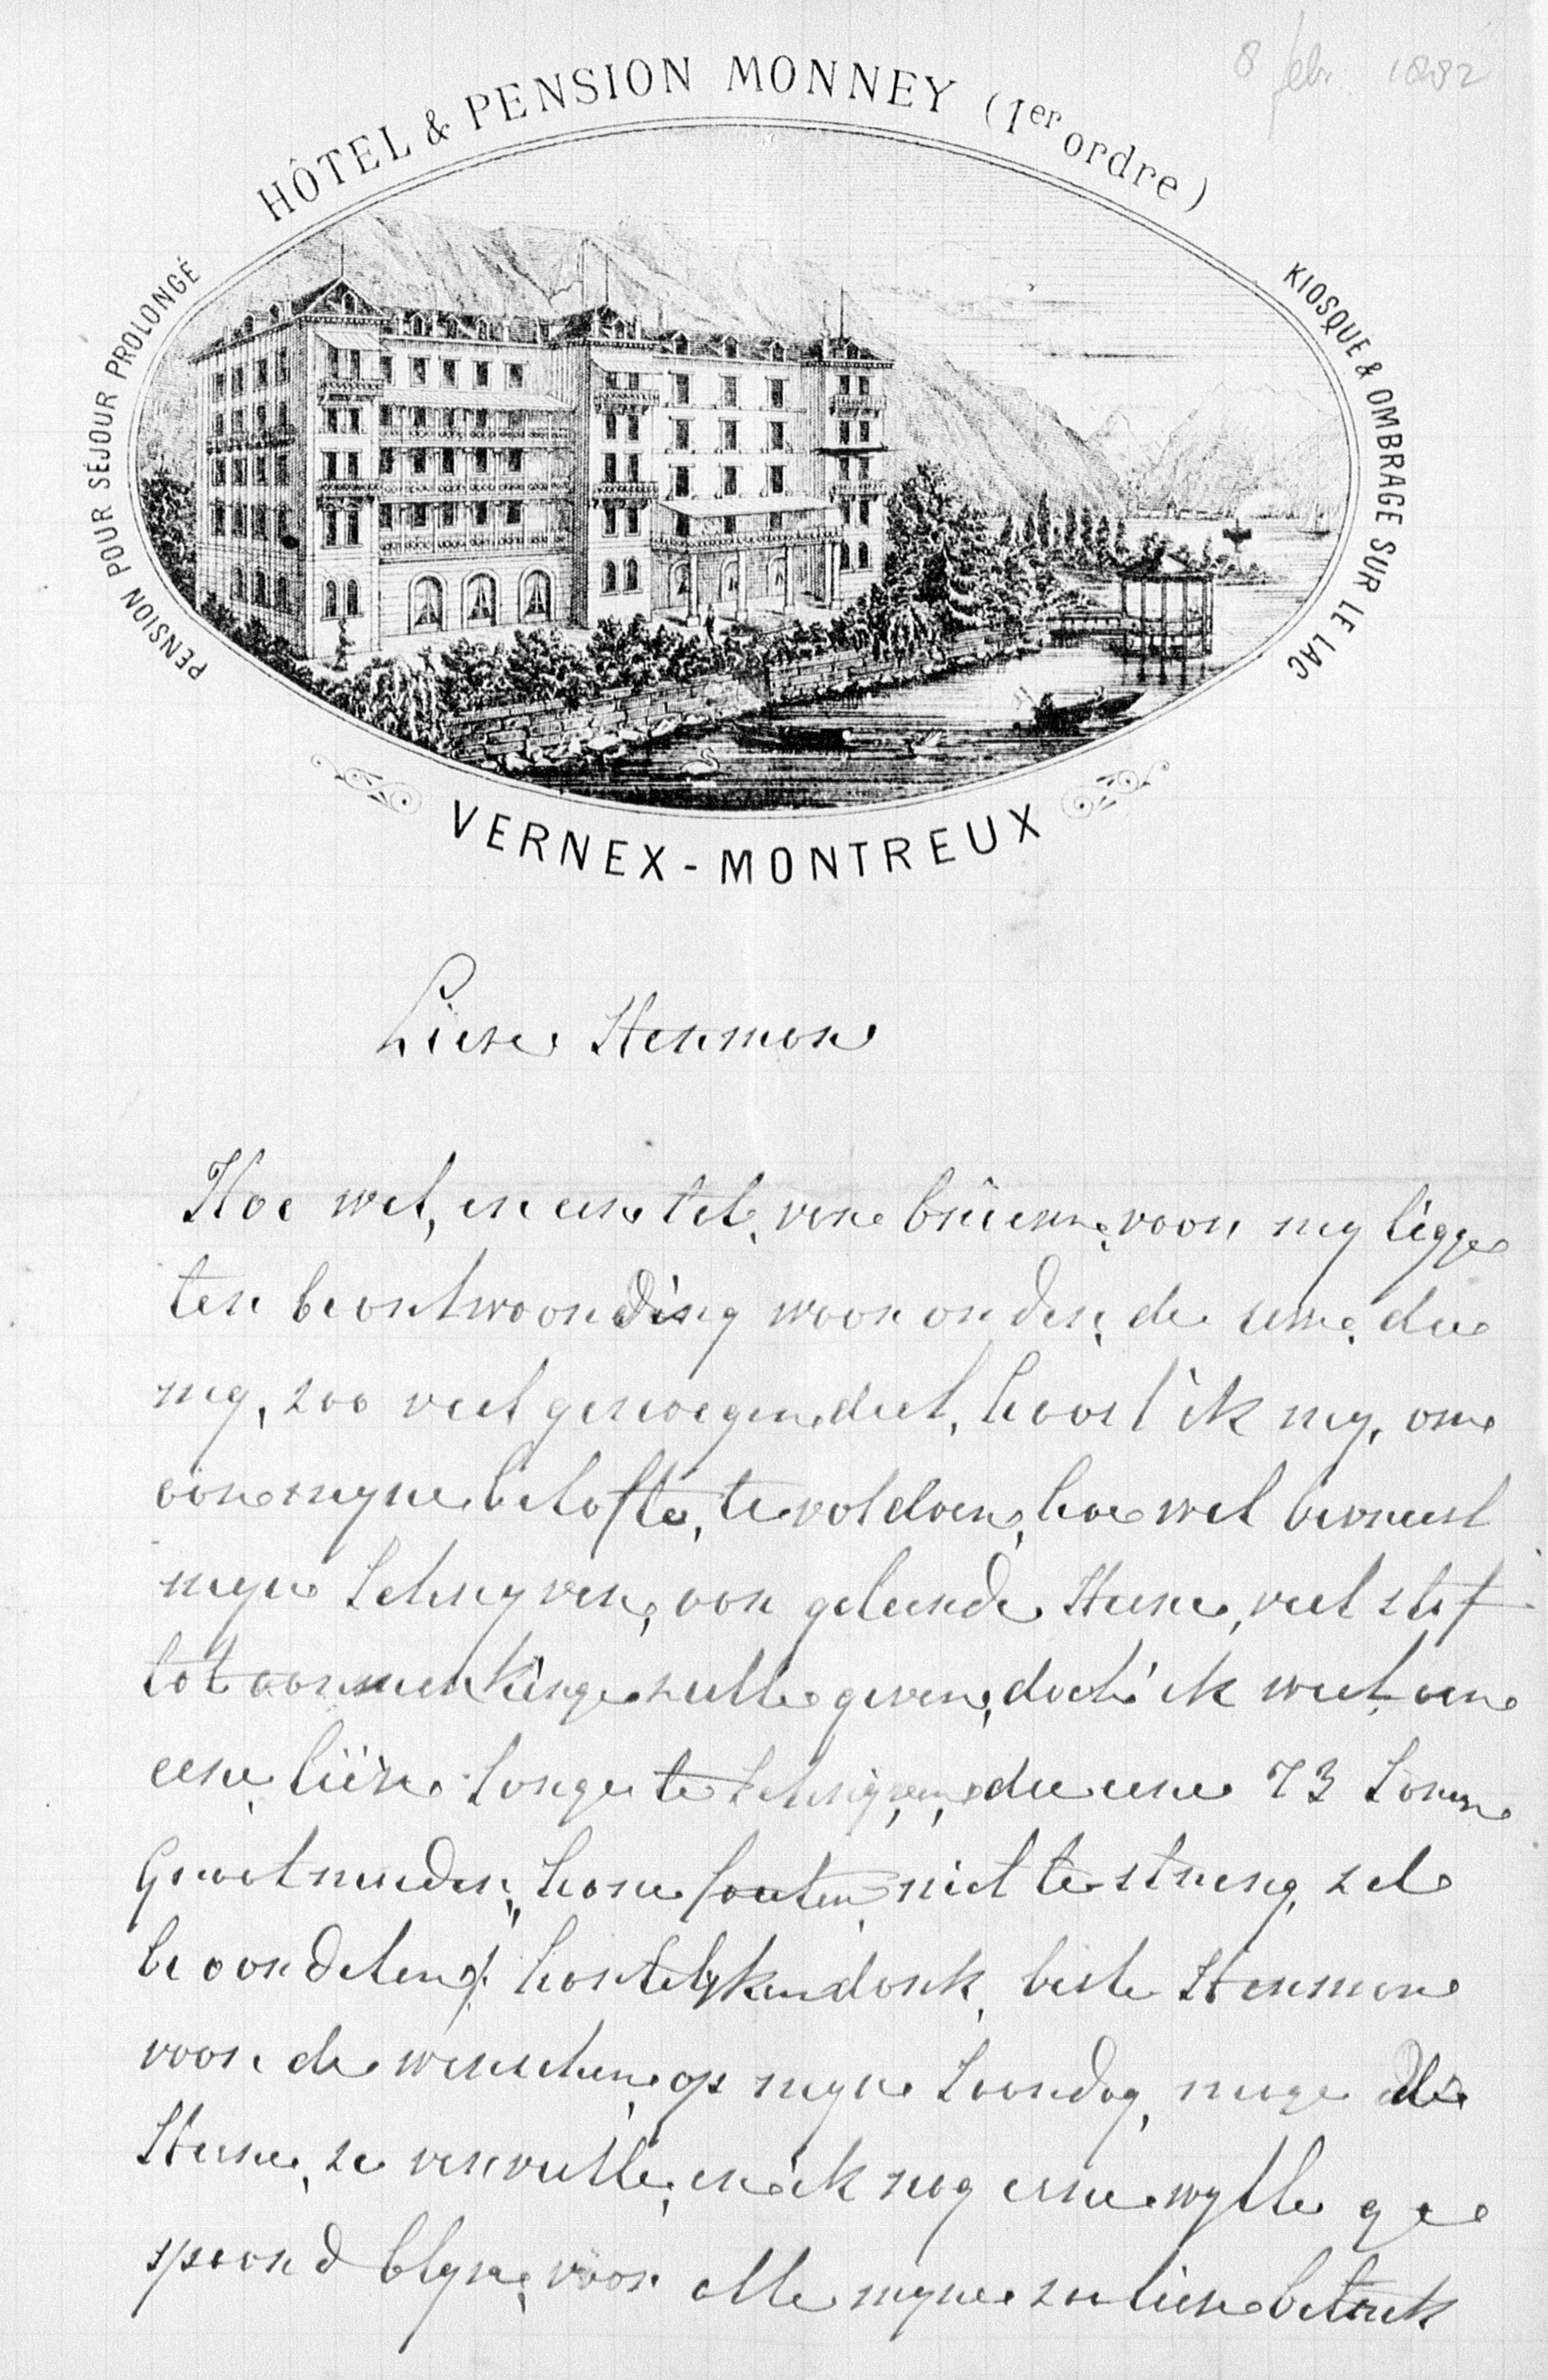 8 febr. 1892
HÔTEL & PENSION MONNEY (1er ordre)
PENSION POUR SÉJOUR PROLONGÉ
KIOSQUE & OMBRAGE SUR LE LAC
VERNEX-MONTREUX
Lieve Herman
Hoe wel, er een tal, van brieven, voor my ligge
ter beantwoording waar onder, de uwe, die
my, zoo veel genoegen deet, haast ik my, om
aan myne belofte, te voldoen, hoe wel bevreest
myn schryven, aan geleerde Heere, veel stof
tot aanmerkinge zulle geven, doch ik weet, aan
eene lieve Jonge te schryven, die eene 73 Jarige
Grootmoeder, hare fouten, niet te streng, zal
beoordelen, hartelyken dank, beste Herman
voor de wenschen, op myne Jaardag, moge de
Heere, ze vervulle, en ik nog eene wylle ge
spaard blyve, voor alle myne zoo lieve betrek